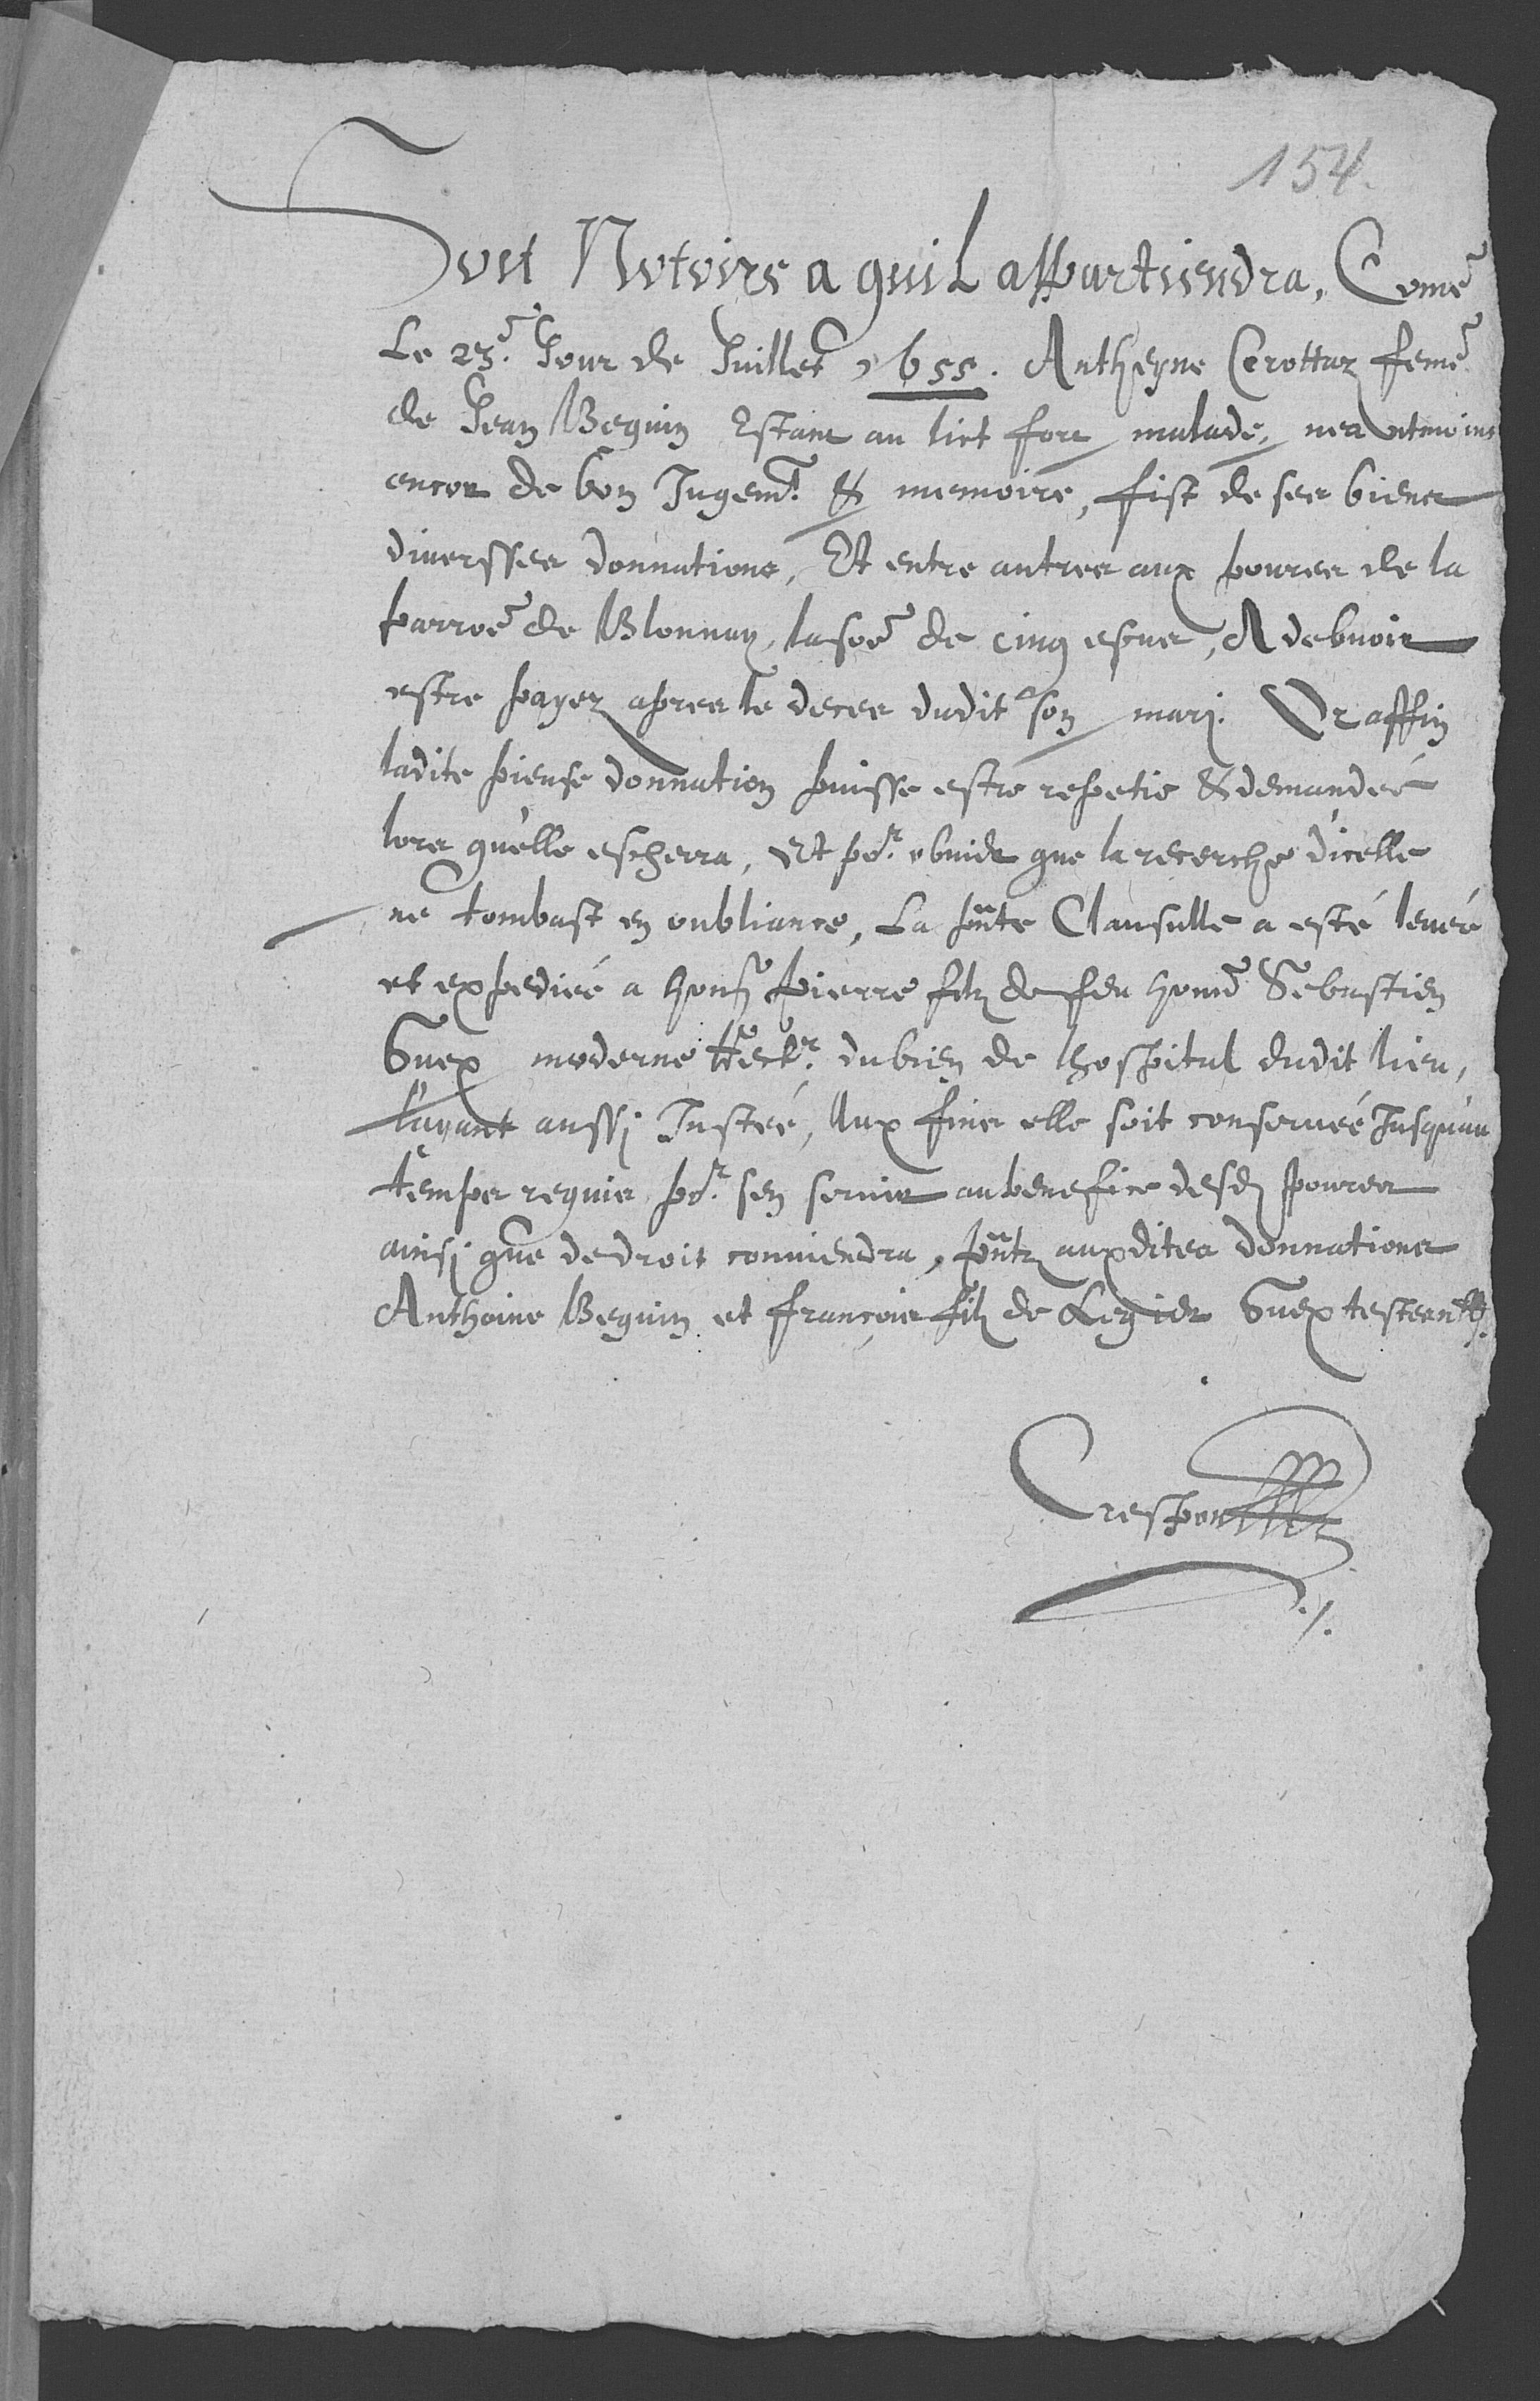 154.
Soit Notoire a quil appartiendra, Come
Le 23e. Jour de Juillet 1655. Antheyne Cerottaz feme
de Jean Beguin Estant au lict fort malade, neantmoins
encor de bon Jugemt. & memoire, fist de ses biens
diversses donnations, Et entre autres aux poures de la
parroe de Blonnay, la soe de cinq escus, A debuoir
estre payez apres le deces dudit son mary. Or affin
ladite pieuse donnation puisse estre repetie & demandée
lors qu'elle escherra, Et por. obuier que la recerche d'icelle
ne tombast en oubliance, La pnte Clausulle a esté leuée
et expediée a hon Pierre filz de feu home Sebastien
Guex moderne rectr. du bien de lhospital dudit lieu,
Layant aussy Instée, Aux fins elle soit conseruée Jusqu'au
temps requis por. sen seruir au benefice desd poures
ainsy que de droit conuiendra, pntz auxdites donnations
Anthoine Beguin et françois filz de Legier Guex testeants.
Crespon
./.